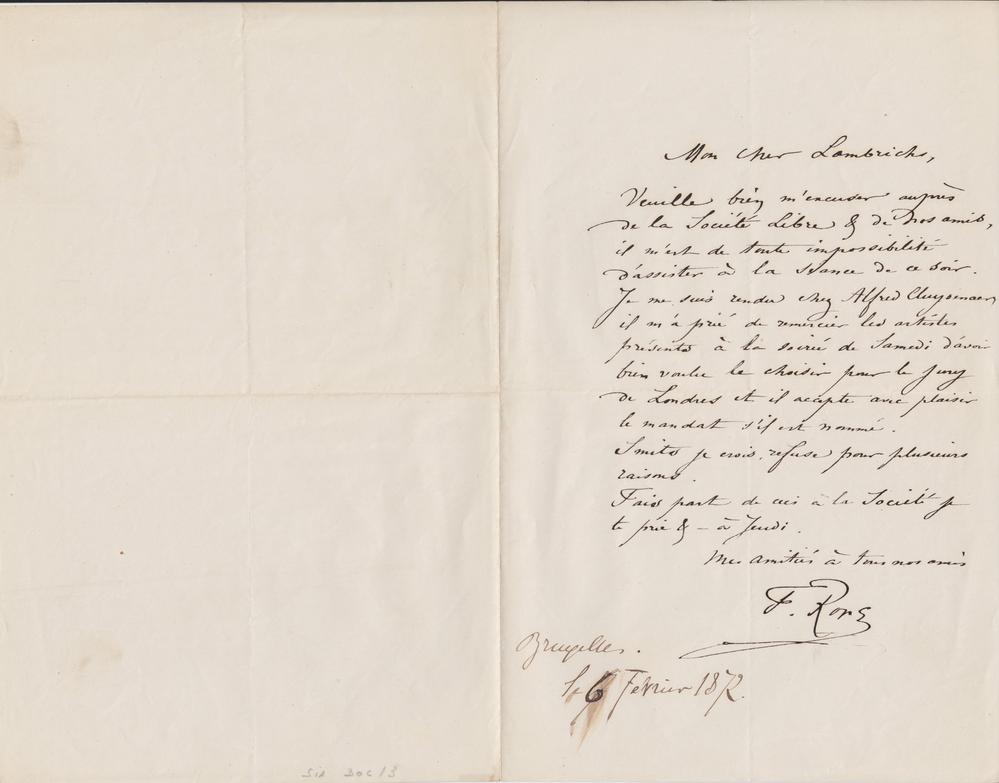 Mon cher Lambrichs,
Veuille bien m'excuser auprès
de la Société Libre & de nos amis,
il m'est de toute impossibilité
d'assister à la séance de ce soir.
Je me suis rendu chez Alfred Cluysenaer,
il m'a prié de remercier les artistes
présents à la soirée de Samedi d'avoir
bien voulu le choisir pour le jury
de Londres et il accepte avec plaisir
le mandat s'il est nommé.
Smits je crois, refuse pour plusieurs
raisons.
Fais part de ceci à la Société je
te prie & – à Jeudi.
Mes amitiés à tous nos amis
F. Rops
Bruxelles.
le 6 Février 1872.
SIA DOC/3